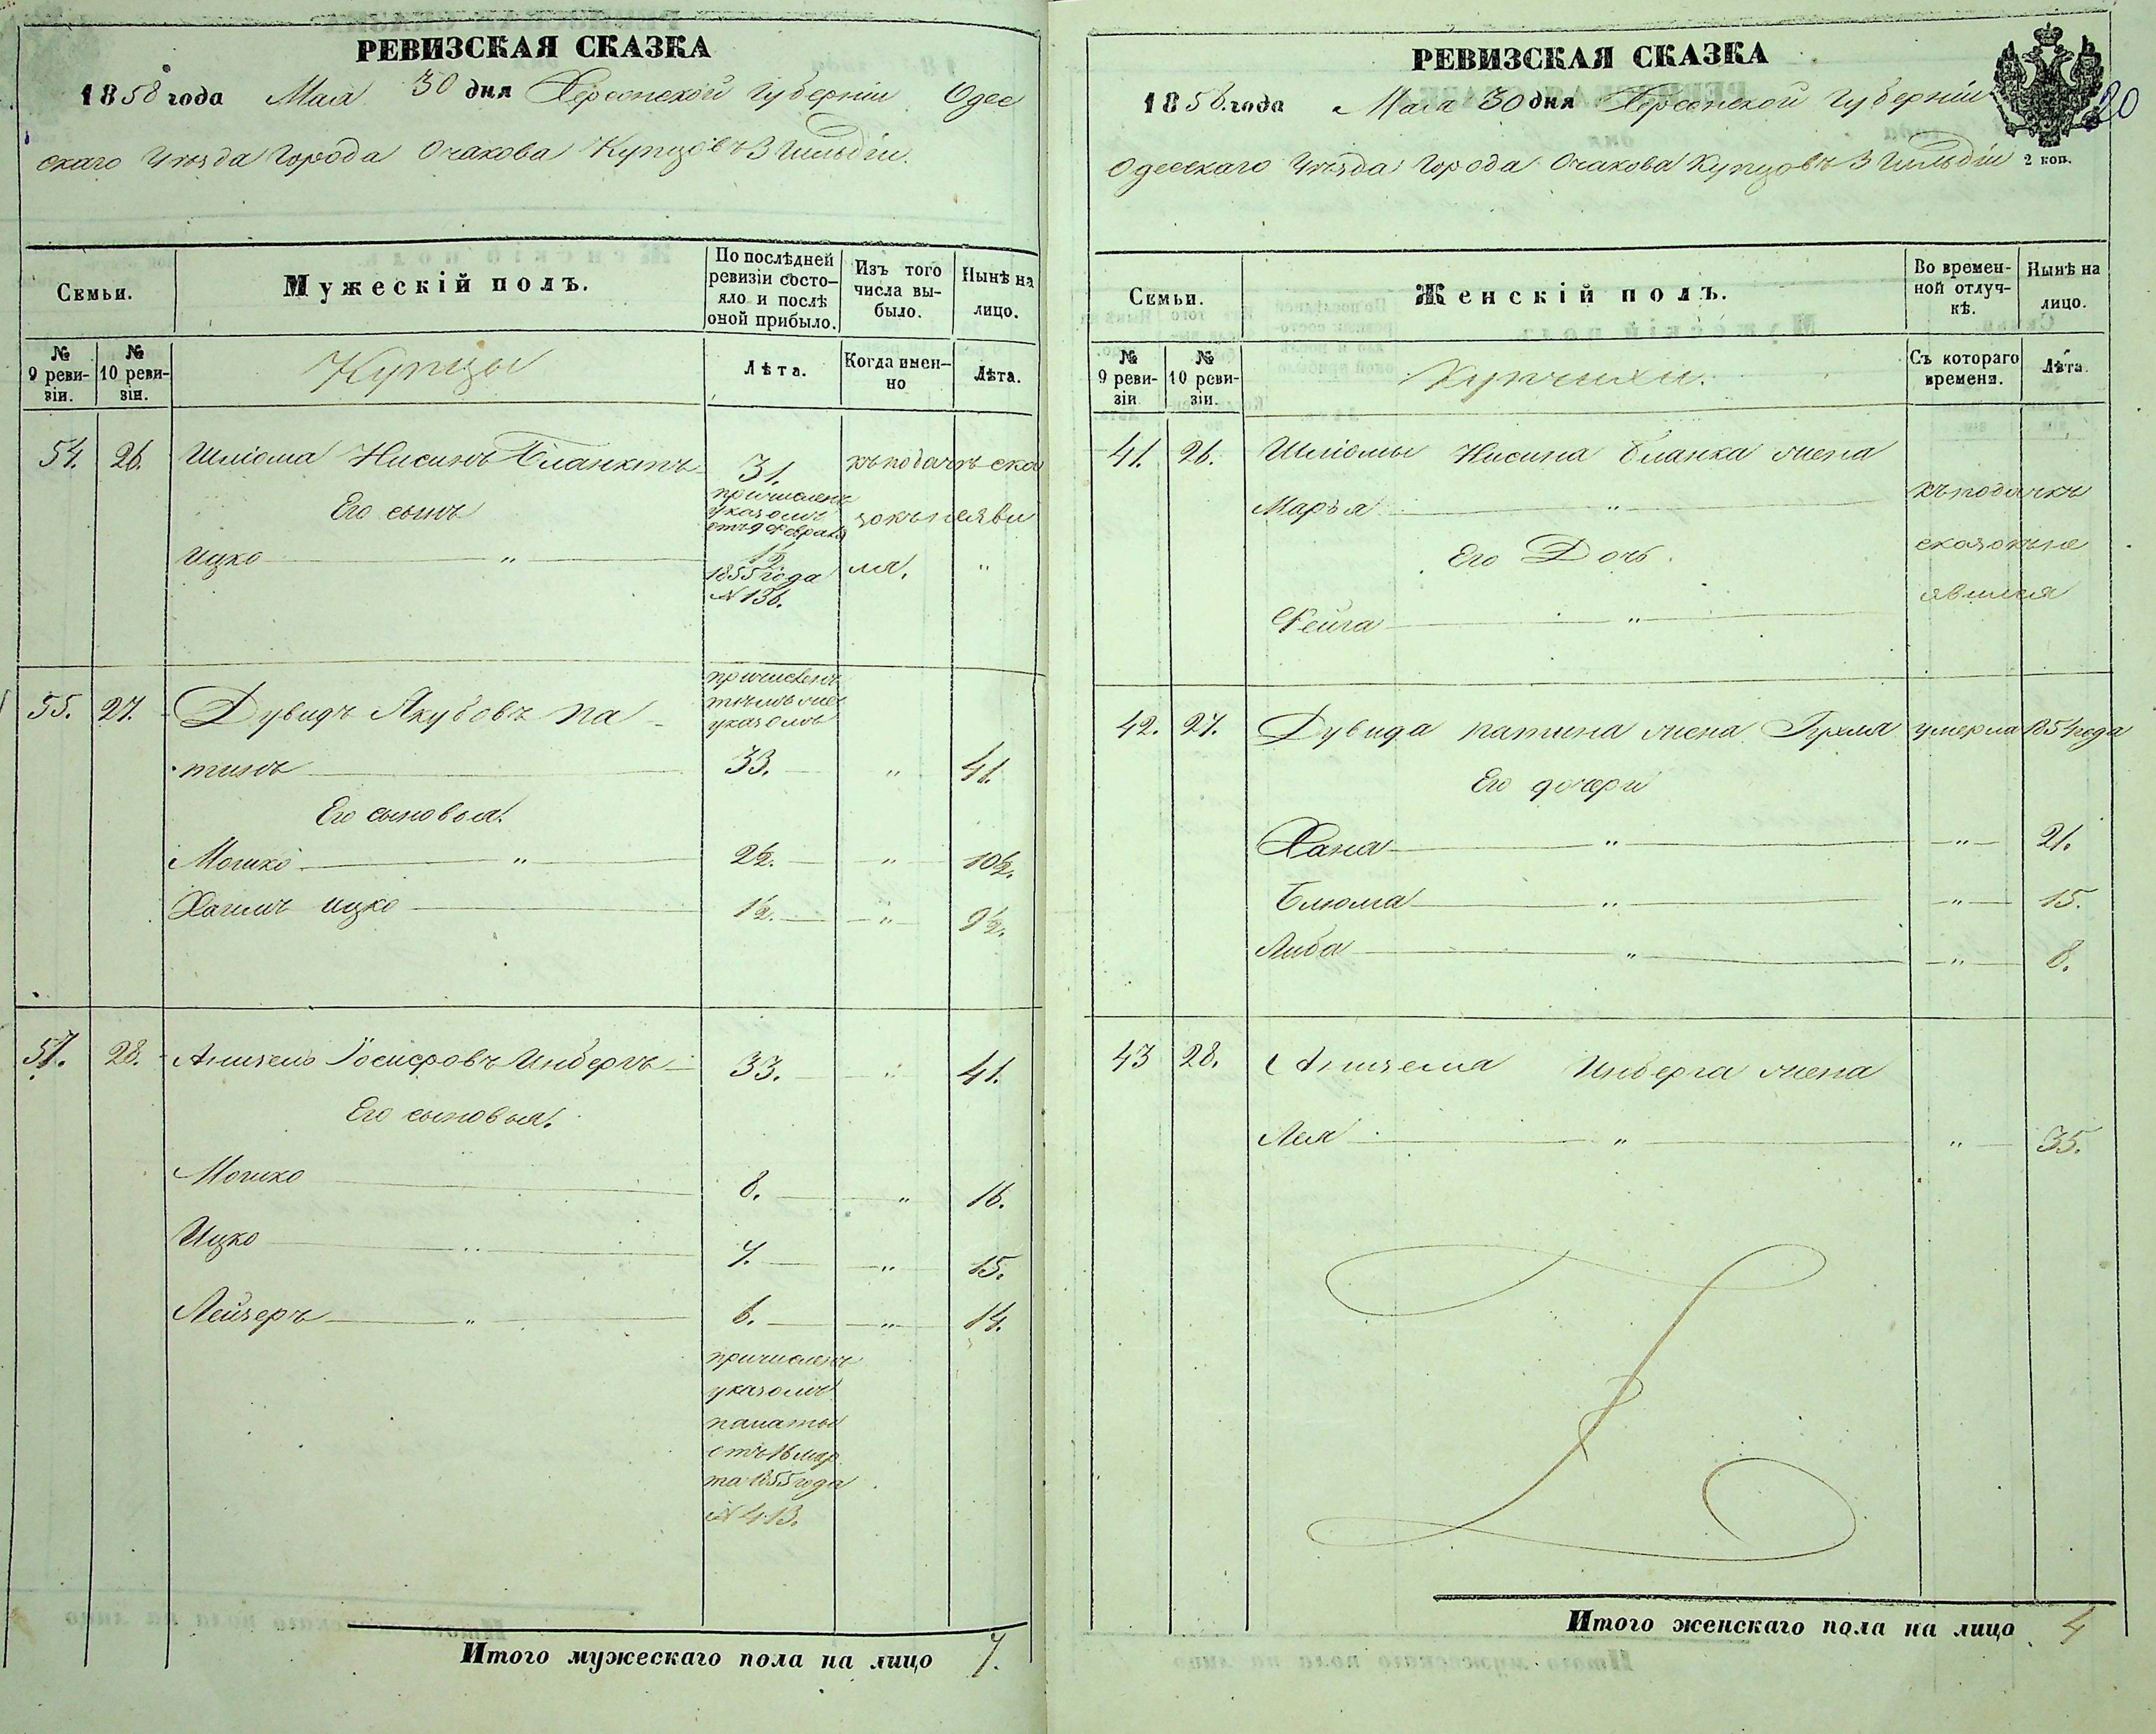 РЕВИЗСКАЯ СКАЗКА
1858 года Мая 30 дня Херсонской Губерніи Одес
скаго Уѣзда Города Очакова Купцовъ 3 Гильдіи.
Семьи.
Мужескій полъ.
По послѣдней ревизіи состояло и послѣ оной прибыло.
Изъ того числа выбыло.
Нынѣ на лицо.
№ 9 ревизіи.
№ 10 ревизіи.
Купцы
Лѣта.
Когда именно
Лѣта.
54. 26. Шліома Нисинъ Бланкъ 31. къ подачѣ ска
Его сынъ причисленъ указомъ отъ 9 Феврал зокъ не яви
Ицко " 1/2 1855 года лся. "
№ 136.
55. 27. Дувидъ Якубовъ Па причисленъ тѣмъ же указомъ
тинъ 33. " 41.
Его сыновья.
Мошко " 2 1/2. " 10 1/2.
Хаимъ Ицко 1 1/2. " 9 1/2.
57. 28. Аншель Іосифовъ Инбергъ 33. " 41.
Его сыновья.
Мошко 8. " 16.
Ицко " 7. " 15.
Лейзеръ " 6. " 14.
причисленъ
указомъ
палаты
отъ 16 мар
та 1855 года
№ 413.
Итого мужескаго пола на лицо 7.
РЕВИЗСКАЯ СКАЗКА
20
1858 года Мая 30 дня Херсонской Губерніи
Одесскаго Уѣзда Города Очакова Купцовъ 3 Гильдіи 2 коп.
Семьи.
Женскій полъ.
Во временной отлучкѣ.
Нынѣ на лицо.
№ 9 ревизіи
№ 10 ревизіи.
Купчихи.
Съ котораго времени.
Лѣта.
41. 26. Шліомы Нисина Бланка жена
Марья " къ подачѣ
Его Дочь. сказокъ не
Фейга " явился
42. 27. Дувида Патина жена Рухля умерла 1854 года
Его дочери
Хана " " 21.
Блюма " " 15.
Либа " " 8.
43 28. Аншеля Инберга жена
Лея " " 35.
Итого женскаго пола на лицо 4